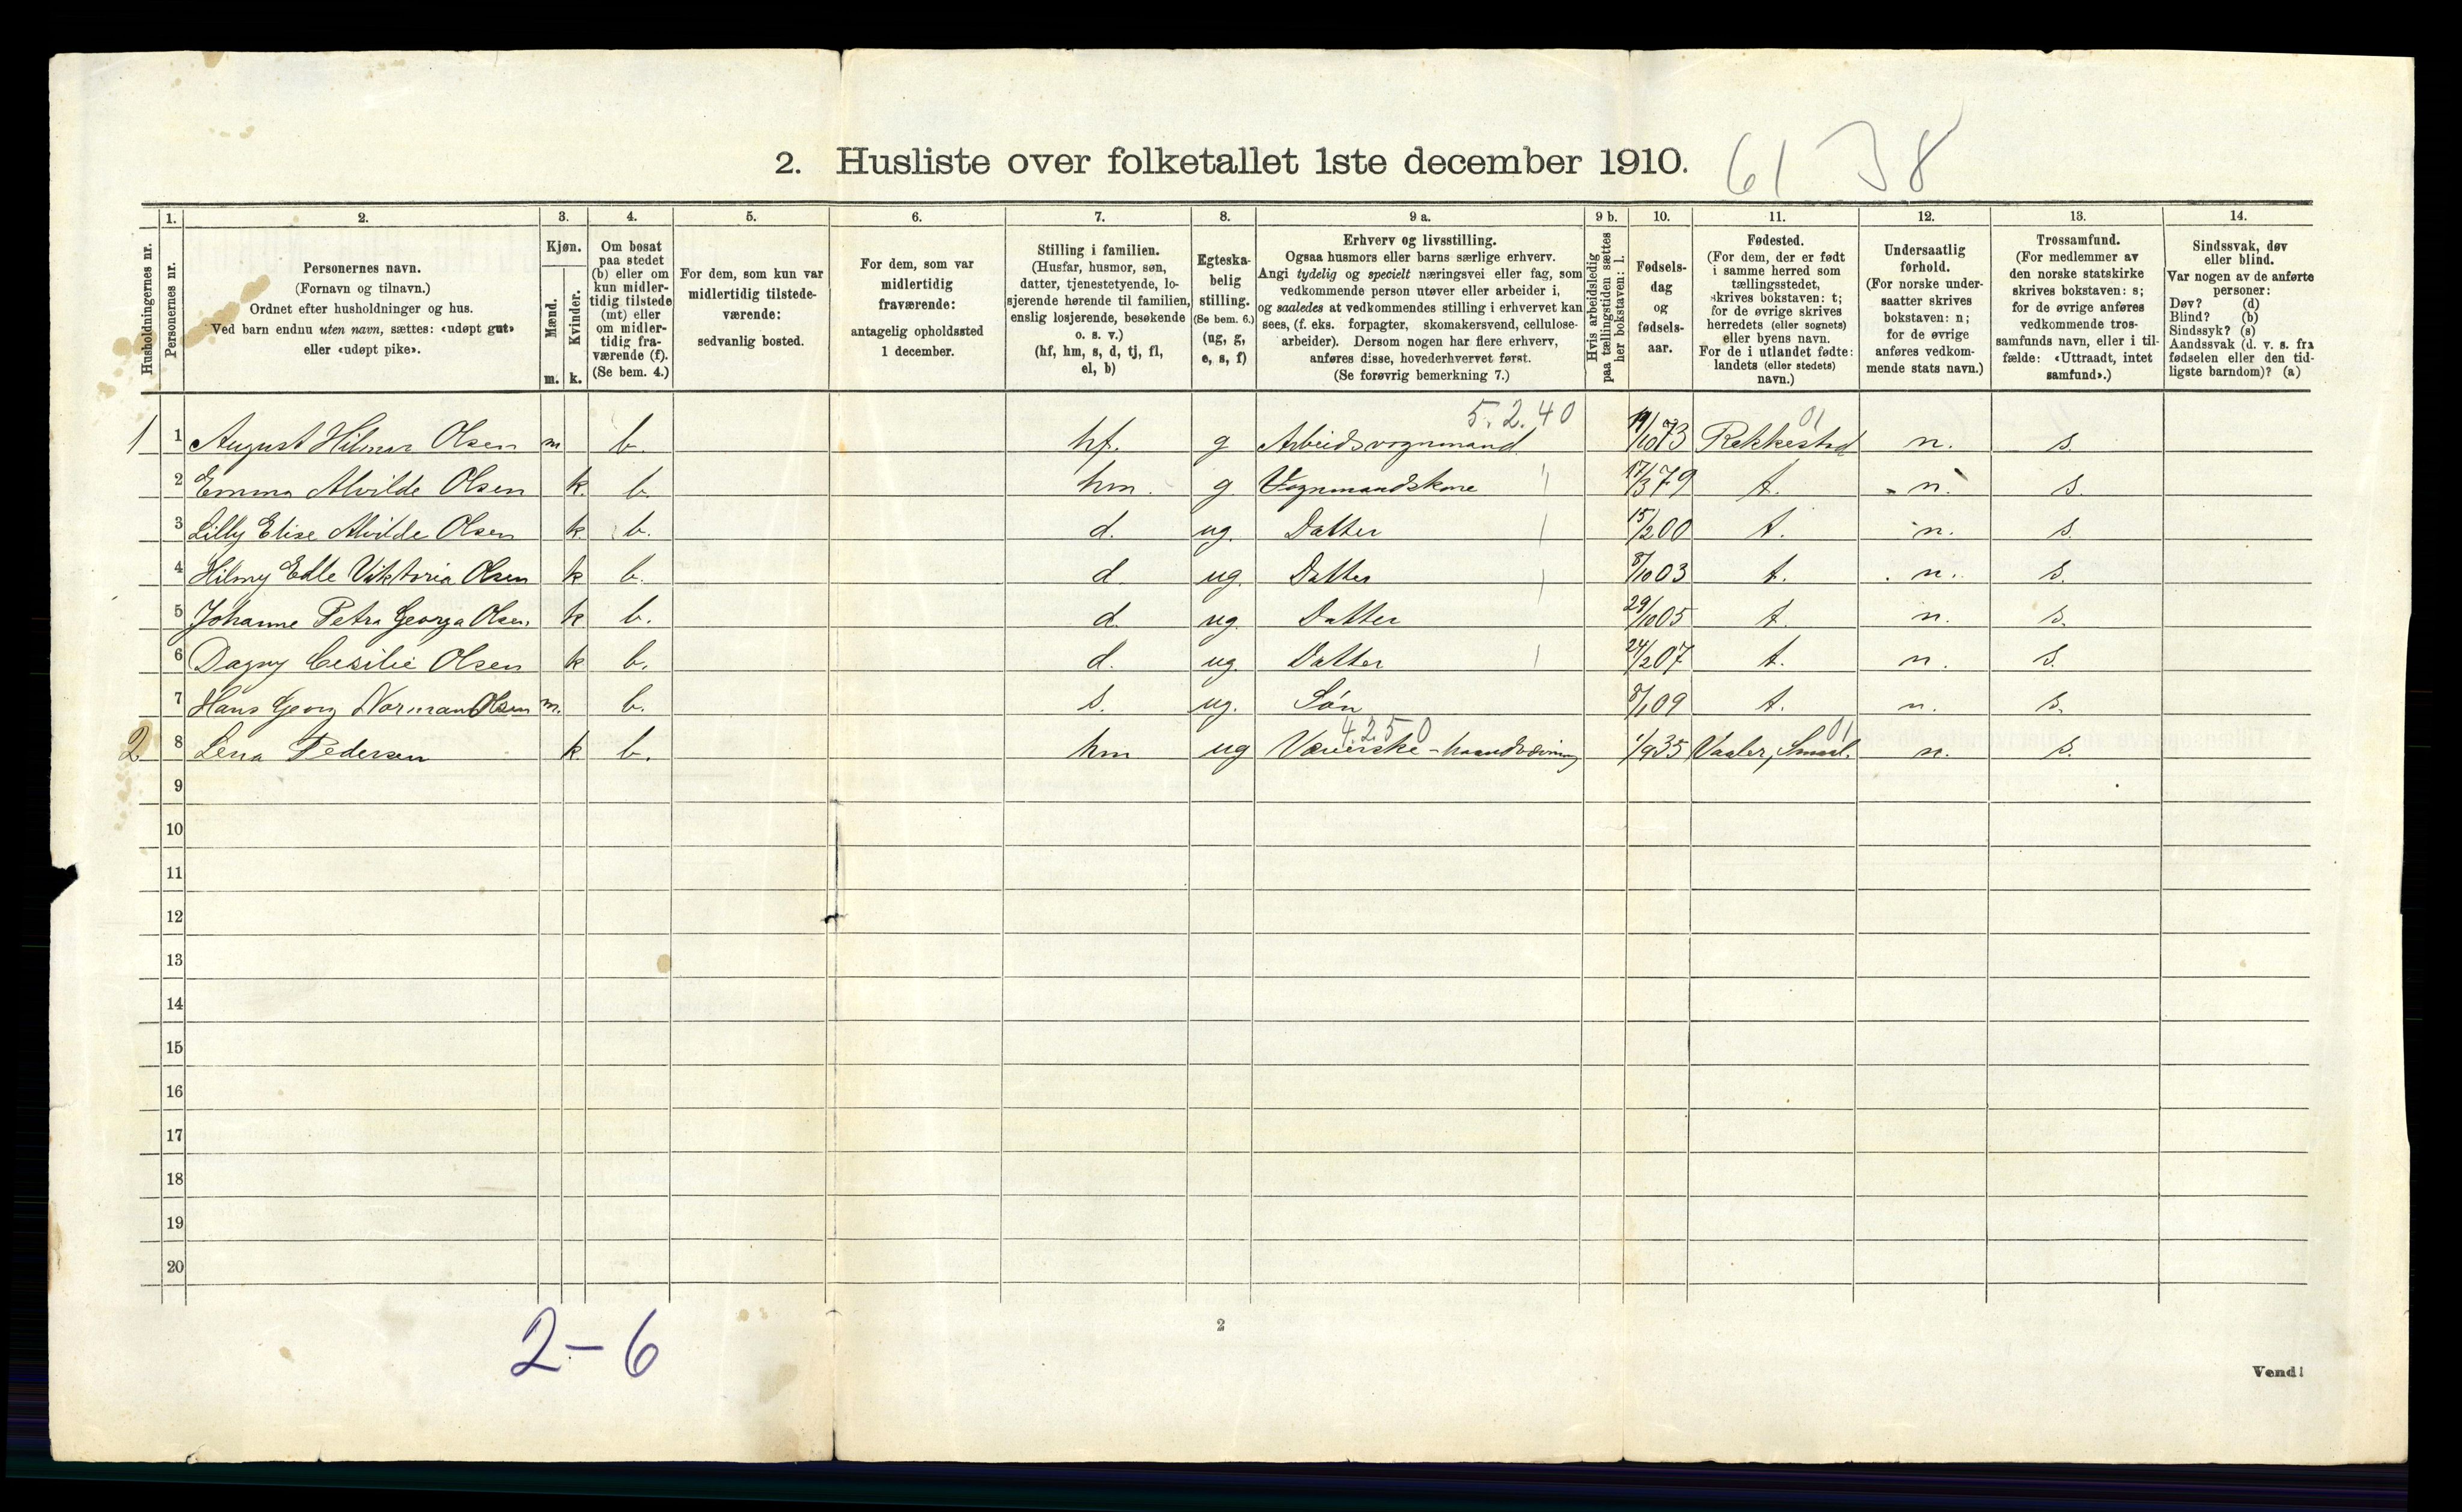 2. Husliste over folketallet 1ste december 1910.
61 38
Husholdningernes nr.
1.
Personernes nr.
2.
Personernes navn.
(Fornavn og tilnavn.)
Ordnet efter husholdninger og hus.
Ved barn endnu uten navn, sættes: «udøpt gut»
eller «udøpt pike».
3.
Kjøn.
Mænd.
m.
Kvinder.
k.
4.
Om bosat
paa stedet
(b) eller om
kun midler-
tidig tilstede
(mt) eller
om midler-
tidig fra-
værende (f).
(Se bem. 4.)
5.
For dem, som kun var
midlertidig tilstede-
værende:
sedvanlig bosted.
6.
For dem, som var
midlertidig
fraværende:
antagelig opholdssted
1 december.
7.
Stilling i familien.
(Husfar, husmor, søn,
datter, tjenestetyende, lo-
sjerende hørende til familien,
enslig losjerende, besøkende
o. s. v.)
(hf, hm, s, d, tj, fl,
el, b)
8.
Egteska-
belig
stilling.
(Se bem. 6.)
(ug, g,
e, s, f)
9 a.
Erhverv og livsstilling.
Ogsaa husmors eller barns særlige erhverv.
Angi tydelig og specielt næringsvei eller fag, som
vedkommende person utøver eller arbeider i,
og saaledes at vedkommendes stilling i erhvervet kan
sees, (f. eks. forpagter, skomakersvend, cellulose-
arbeider). Dersom nogen har flere erhverv,
anføres disse, hovederhvervet først.
(Se forøvrig bemerkning 7.)
9 b.
Hvis arbeidsledig
paa tællingstiden sættes
her bokstaven: l.
10.
Fødsels-
dag
og
fødsels-
aar.
11.
Fødested.
(For dem, der er født
i samme herred som
tællingsstedet,
skrives bokstaven: t;
for de øvrige skrives
herredets (eller sognets)
eller byens navn.
For de i utlandet fødte:
landets (eller stedets)
navn.)
12.
Undersaatlig
forhold.
(For norske under-
saatter skrives
bokstaven: n;
for de øvrige
anføres vedkom-
mende stats navn.)
13.
Trossamfund.
(For medlemmer av
den norske statskirke
skrives bokstaven: s;
for de øvrige anføres
vedkommende tros-
samfunds navn, eller i til-
fælde: «Uttraadt, intet
samfund».)
14.
Sindssvak, døv
eller blind.
Var nogen av de anførte
personer:
Døv? (d)
Blind? (b)
Sindssyk? (s)
Aandssvak (d. v. s. fra
fødselen eller den tid-
ligste barndom)? (a)
5.2.40 01
1 1 August Hilmar Olsen m b. hf. g Arbeidsvognmand /10 73 Rekkestad n. s.
2 Emma Alvilde Olsen k. b. hm. g Vognmandskone 17/3 79 t. n. s.
3 Lilly Elise Alvilde Olsen k b. d. ug. Datter 15/2 00 t. n. s.
4 Hilmy Edle Viktoria Olsen k b. d. ug. Datter 8/10 03 t. n. s.
5 Johanne Petra Georga Olsen k b. d. ug. Datter 29/10 05 t. n. s.
6 Dagny Cesilie Olsen k b. d. ug. Datter 24/2 07 t. n. s.
7 Hans Georg Norman Olsen m. b. s. ug. Søn 8/1 09 t. n. s.
4250 01
2 8 Lena Pedersen k. b. hm ug Væverske - haandvævning 1/9 35 Vaaler, Smaal. n. s.
9
10
11
12
13
14
15
16
17
18
19
20
2-6
2
Vend!